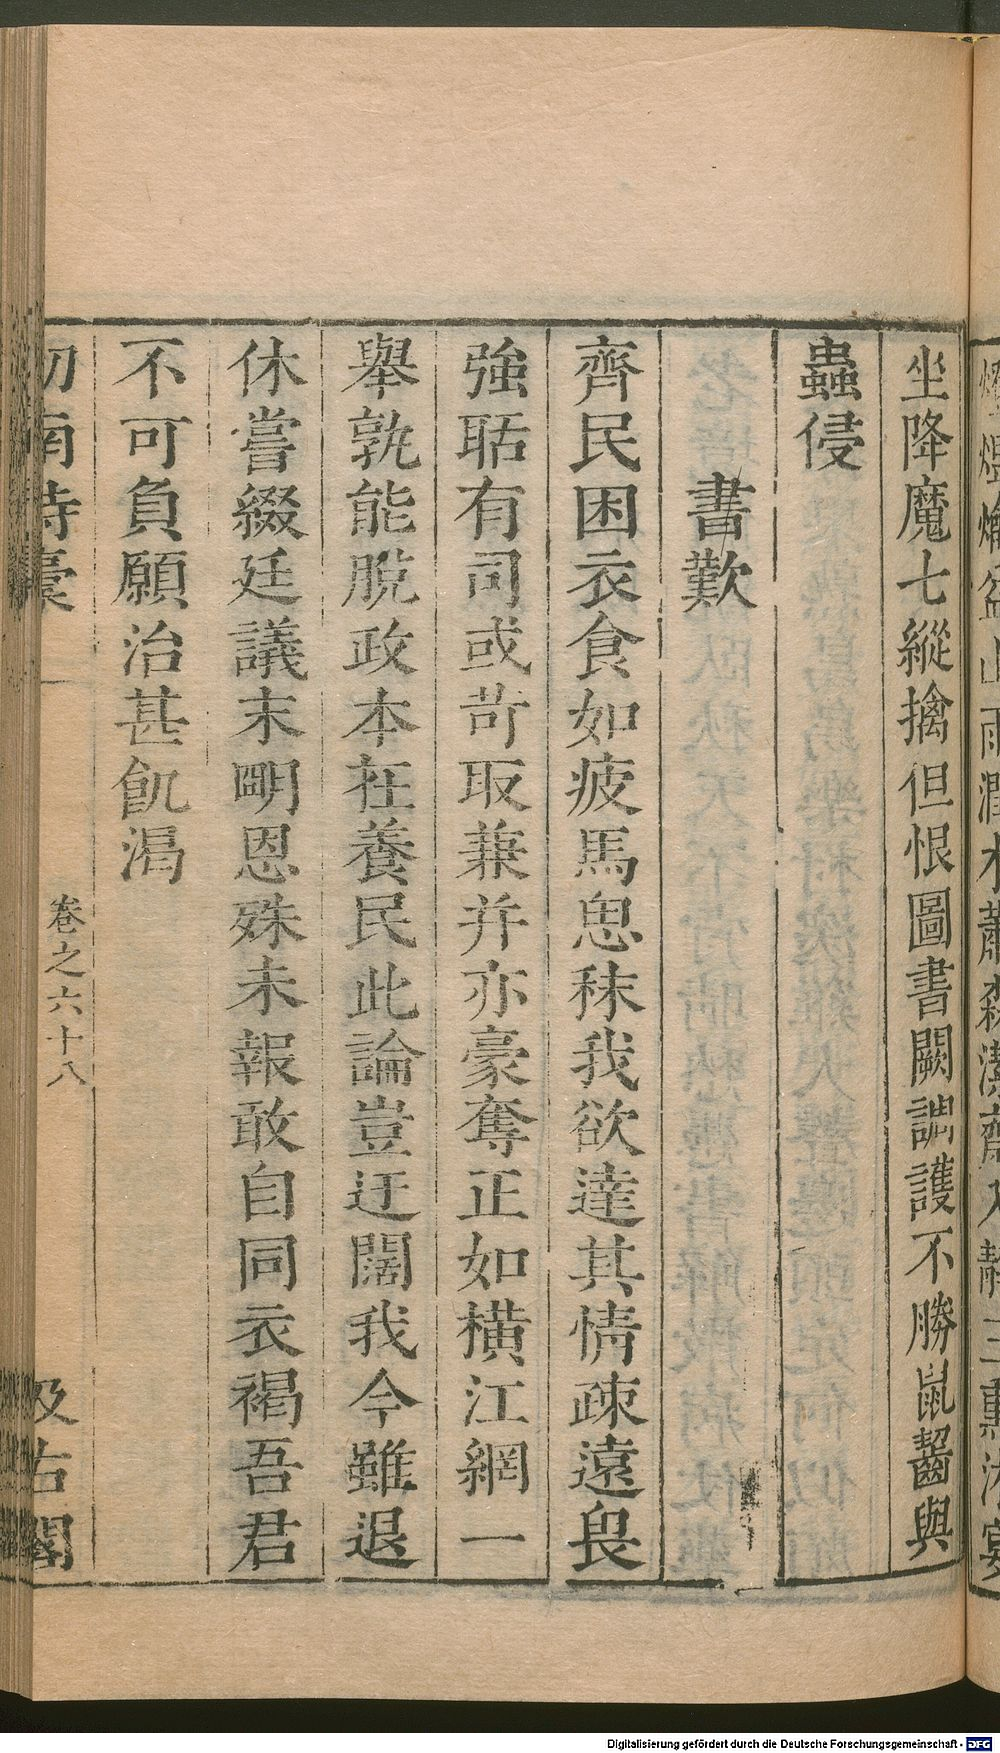 坐降魔七縱擒但恨圖書闕調護不勝鼠齧與
蟲侵
書歎
齊民困衣食如疲馬思秣我欲達其情疎遠畏
強聒有司或苛取兼并亦豪奪正如橫江網一
舉孰能脫政本在養民此論豈迂闊我今雖退
休嘗綴廷議末明恩殊未報敢自同衣褐吾君
不可負願治甚飢渴
劒南詩稾
卷之六十八
汲古閣
Digitalisierung gefördert durch die Deutsche Forschungsgemeinschaft - DFG